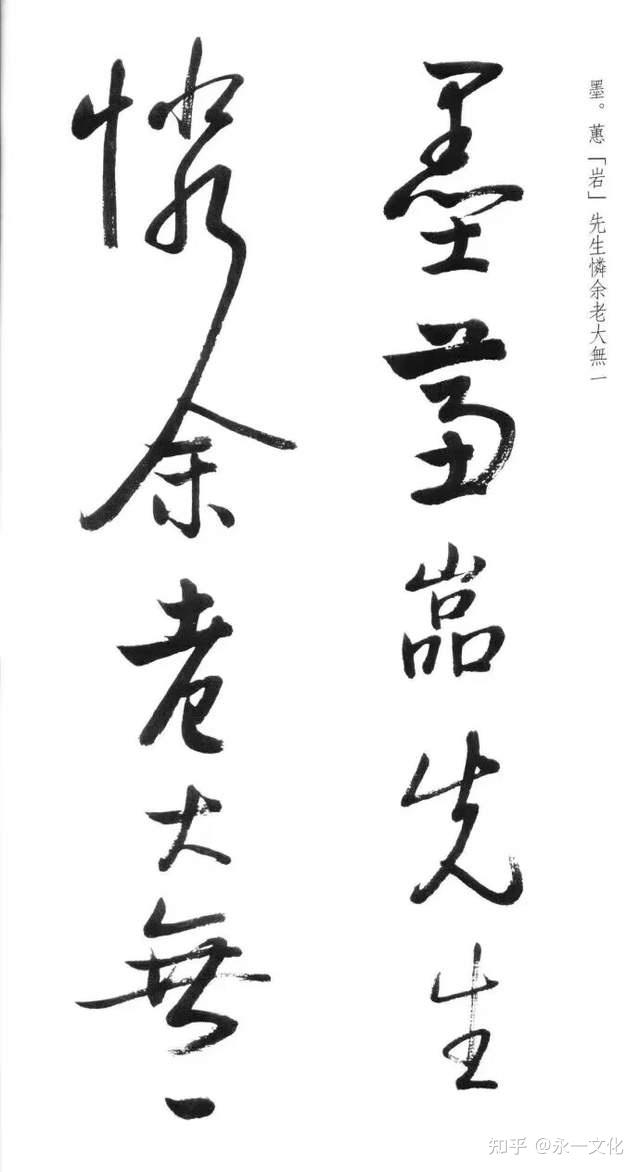 墨。蕙「岩」先生憐余老大無一
墨蕙嵒先生
憐余老大無一
知乎 @永一文化